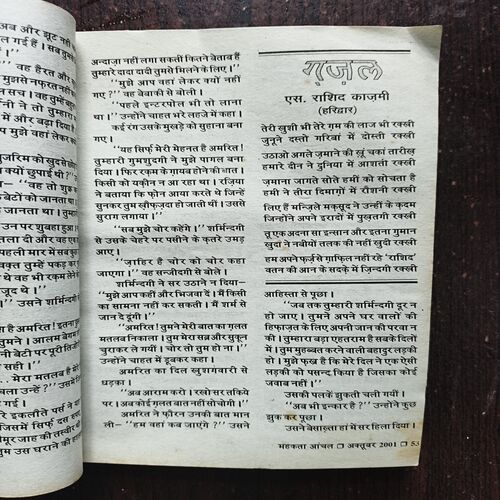 अब और झूट नहीं
गई हैं । सब तुमसे
''
वह हैरत और
मुझसे नफ़रत नहीं
सच । वह तुम्हें बहुत
ने तो तुम्हारा
और बढ़ा दिया है
मुजरिम को खुद से
क्यों छुपाई थी ?''
— ''वह तो शुक्र
बेटों को जानता था
जानता था ।
उन पर शुबहा हुआ ।
तला दी और वह
पहली मार में सब
वक़्त तुम्हें पकड़ कर
थे वह भी रक़म लेने
मौजूद थे ।''
'' उसने शर्मिन्दगी
है अमरित ! इतना
तुमने । आलम बेगम
बेटी पर पूरी
सही ।''
''... मेरा मतलब है मेरे
बला उन्हें ?'' उसने
थे ।
इकलौते पर्स ने
जिसमें सिर्फ़ दस
तैमूर जाह की तस्वीर थी
तुम उस घराने की
अन्दाज़ा नहीं लगा सकतीं कितने बेताब हैं
तुम्हारे दादा दादी तुमसे मिलने के लिए ।''
''मुझे आप वहां लेकर क्यों नहीं
गए ?'' वह बेबाकी से बोली ।
''पहले इन्टरपोल भी तो लाना
था ।'' उन्होंने चाहत भरे लहजे में कहा ।
कई रंग उसके मुखड़े को सुहाना बना
गए ।
''यह सिर्फ़ मेरी मेहनत है अमरित !
तुम्हारी गुमशुदगी ने मुझे पागल बना
दिया । फिर रक़म के ग़ायब होने की बात ।
किसी को यक़ीन न आ रहा था । रज़िया
ने बताया कि फोन आया करते थे जिन्हें
सुनकर तुम ख़ौफ़ज़दा हो जाती थीं । उससे
सुराग लगाया ।''
''सब मुझे चोर कहेंगे ।'' शर्मिन्दगी
से उसके चेहरे पर पसीने के क़तरे उमड़
आए ।
''ज़ाहिर है चोर को चोर कहा
जाएगा ।'' वह सन्जीदगी से बोले ।
शर्मिन्दगी ने सर उठाने न दिया—
''मुझे आप कहीं और भिजवा दें । मैं किसी
का सामना नहीं कर सकती । मैं शर्म से
जान दे दूंगी ।''
''अमरित ! तुमने मेरी बात का ग़लत
मतलब निकाला । तुम मेरा सब्र और सुकून
चुराकर ले गयीं । चोर तो तुम हो ना ।''
उन्होंने चाहत में डूबकर कहा ।
अमरित का दिल खुशगंवारी से
धड़का ।
''अब आराम करो । रखो सर तकिये
पर । अब कोई ग़लत बात नहीं सोचोगी ।''
अमरित ने फ़ौरन उनकी बात मान
ली— ''हम वहां कब जाएंगे ?'' उसने
ग़ज़ल
एस. राशिद काज़मी
(हरिद्वार)
तेरी खुशी भी तेरे ग़म की लाज भी रक्खी
जुनूने दस्ती गरिबां में दोस्ती रक्खी
उठाओ अगले ज़माने की खूं चकां तारीख़
हमारे दीन ने दुनिया में आशती रक्खी
ज़माना जागते सोते हमीं को सोचता है
हमी ने तीरा दिमाग़ों में रौशनी रक्खी
लिए हैं मन्ज़िले मक़सूद ने उन्हीं के क़दम
जिन्होंने अपने इरादों में पुख़तगी रक्खी
तू एक अदना सा इन्सान और इतना गुमान
खुदा ने नबीयों तलक की नहीं खुदी रक्खी
हम अपने फ़र्ज़ से ग़ाफ़िल नहीं रहे 'राशिद'
वतन की आन के सदक़े में ज़िन्दगी रक्खी
आहिस्ता से पूछा ।
''जब तक तुम्हारी शर्मिन्दगी दूर न
हो जाए । तुमने अपने घर वालों की
हिफ़ाज़त के लिए अपनी जान की परवा न
की । तुम्हारा बड़ा एहतराम है सबके दिलों
में । तुम मुहब्बत करने वाली बहादुर लड़की
हो । मुझे फ़ख़्र है कि मेरे दिल ने एक ऐसी
लड़की को पसन्द किया है जिसका कोई
जवाब नहीं ।''
उसकी पलकें झुकती चली गयीं ।
''अब भी इन्कार है ?'' उन्होंने कुछ
झुक कर पूछा ।
उसने बेसाख़्ता हां में सर हिला दिया ।
महकता आंचल □ अक्तूबर 2001 □ 53